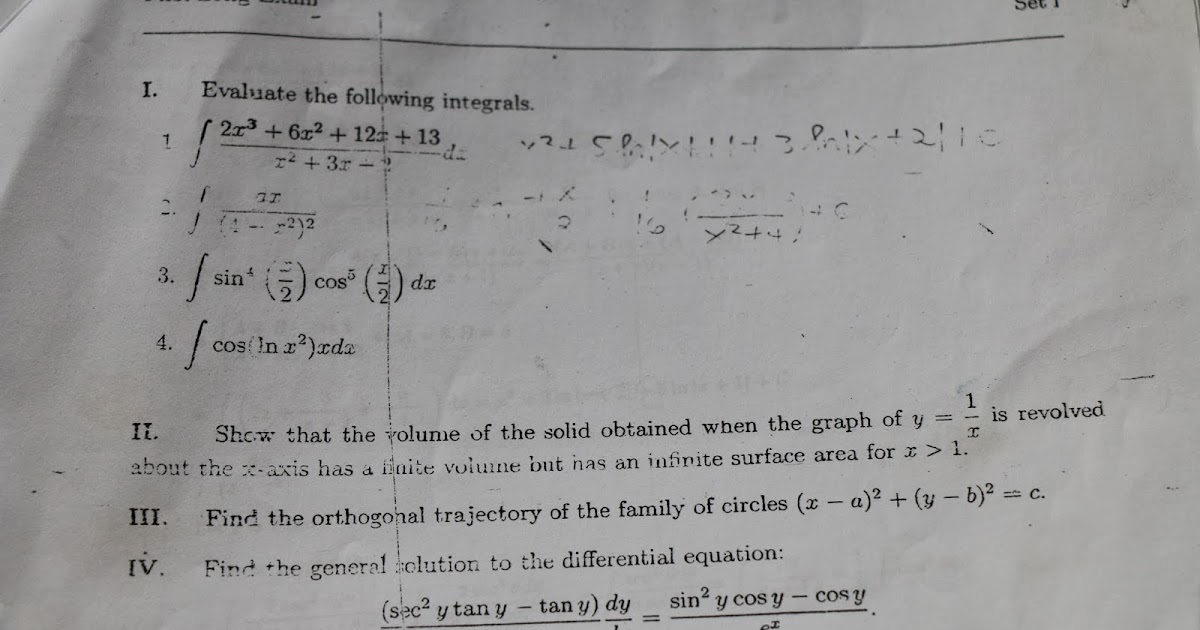 Set 1
I. Evaluate the following integrals.
1. ∫ (2x³ + 6x² + 12x + 13)/(x² + 3x − 2) dx x² + 5 ln|x+1| + 3 ln|x+2| + C
2. ∫
3. ∫ sin⁴ (x/2) cos⁵ (x/2) dx
4. ∫ cos(ln x²)xdx
II. Show that the volume of the solid obtained when the graph of y = 1/x is revolved
about the x-axis has a finite volume but has an infinite surface area for x > 1.
III. Find the orthogonal trajectory of the family of circles (x − a)² + (y − b)² = c.
IV. Find the general solution to the differential equation:
(sec² y tan y − tan y) dy = sin² y cos y − cos y